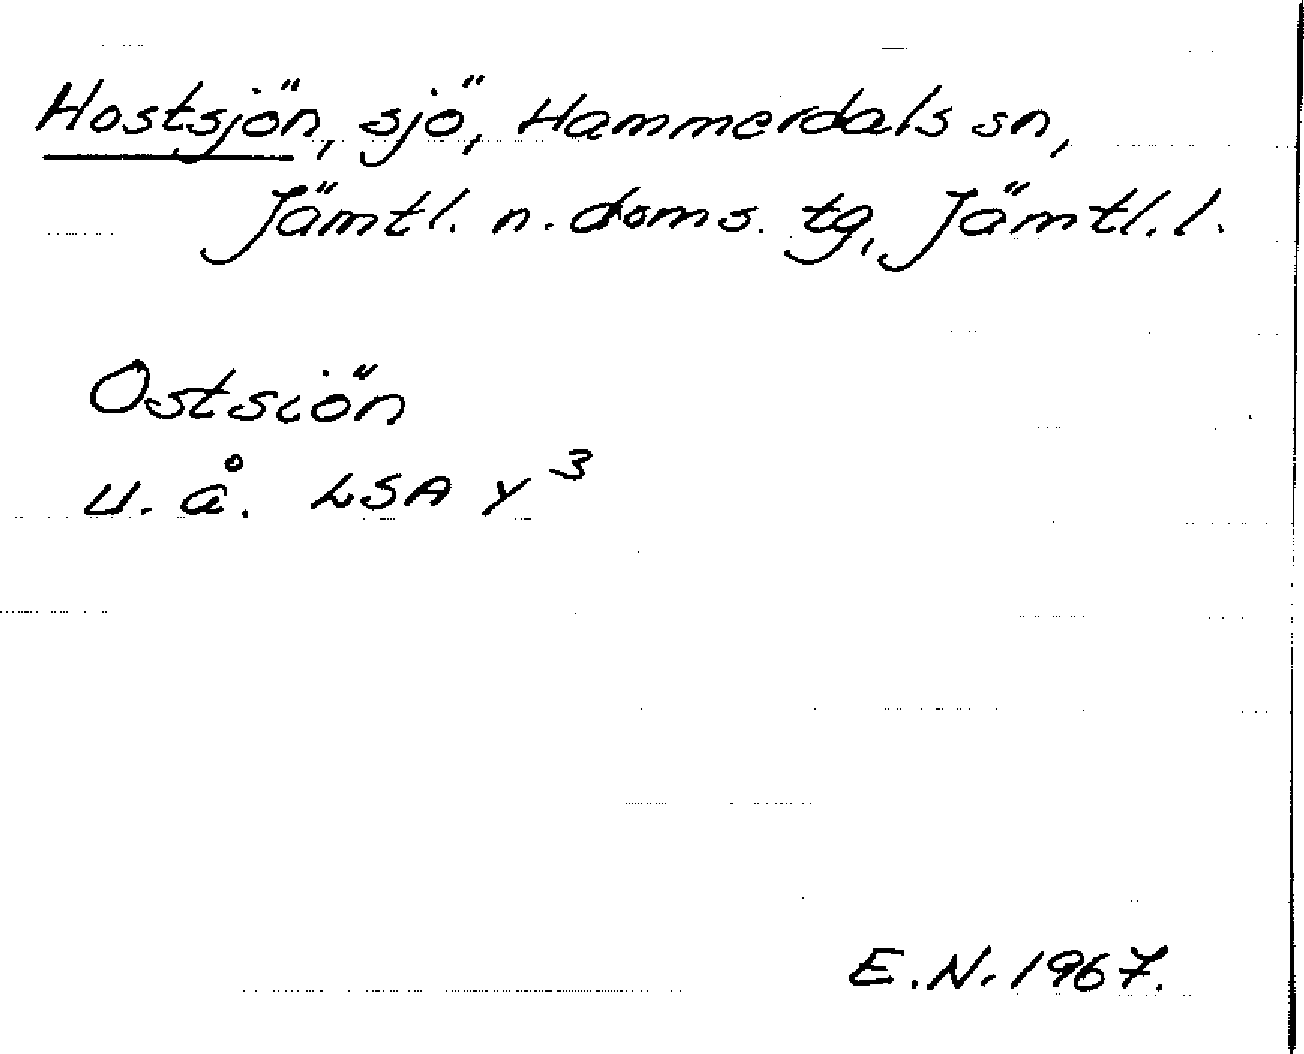 Hostsjön, sjö, Hammerdals sn,
Jämtl. n. doms. tg, Jämtl. l.
Ostsiön
u. å. LSA Y 3
E.N. 1967.